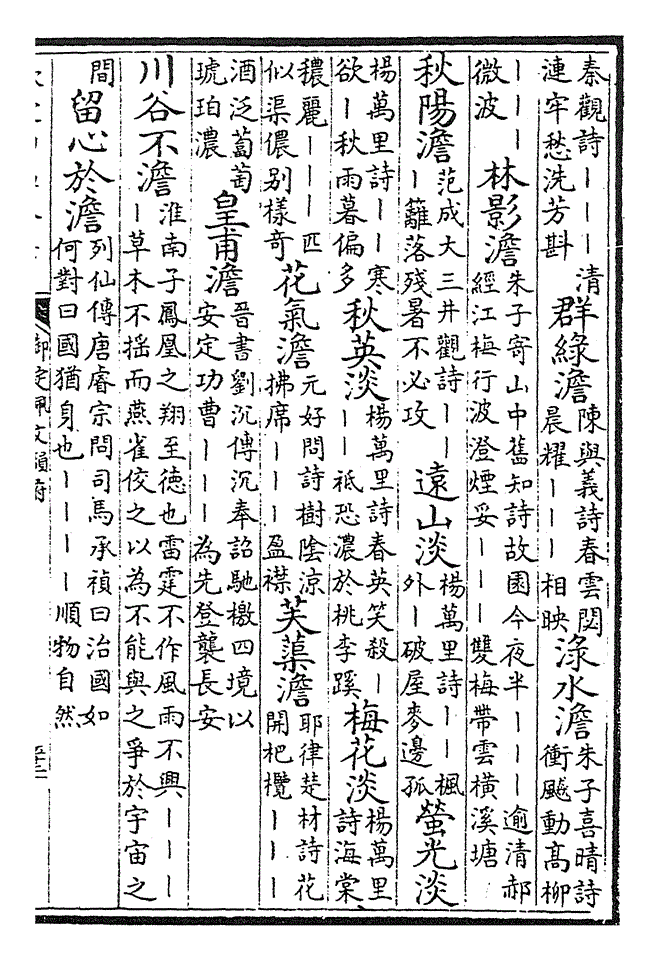 秦觀詩丨丨丨清漣牢愁洗芳斟 群綠澹 陳與義詩春雲閟晨耀丨丨丨相映 淥水澹 朱子喜晴詩衝飈動高柳
丨丨丨微波 林影澹 朱子寄山中舊知詩故園今夜半丨丨丨逾清郝經江梅行波澄煙妥丨丨丨雙梅帶雲橫溪塘
秋陽澹 范成大三井觀詩丨丨丨籬落殘暑不必攻 遠山淡 楊萬里詩丨丨楓外丨破屋麥邊孤 螢光淡
楊萬里詩丨丨寒欲丨秋雨暮偏多 秋英淡 楊萬里詩春英笑殺丨丨丨祇恐濃於桃李蹊 梅花淡 楊萬里詩海棠
穠麗丨丨丨匹似渠儂别樣奇 花氣澹 元好問詩樹陰涼拂席丨丨丨盈襟 芙蕖澹 耶律楚材詩花開杷欖丨丨丨
酒泛萄萄琥珀濃 皇甫澹 晉書劉沉傳沉奉詔馳檄四境以安定功曹丨丨丨為先登襲長安
川谷不澹 淮南子鳳凰之翔至德也雷霆不作風雨不興丨丨丨丨草木不揺而燕雀佼之以為不能與之爭於宇宙之
間 留心於澹 列仙傳唐睿宗問司馬承禎曰治國如何對曰國猶身也丨丨丨丨順物自然
御定佩文韻府